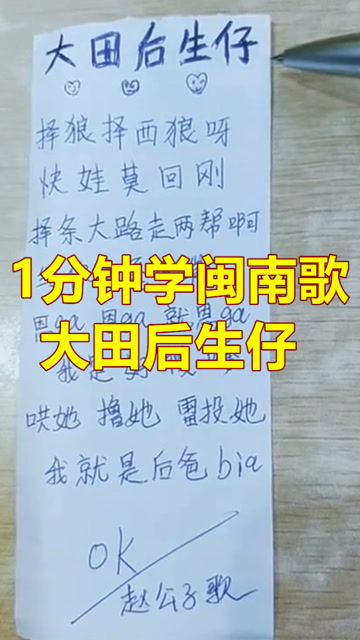 大田后生仔
择狼择西狼呀
快娃莫回刚
择条大路走两帮啊
1分钟学闽南歌
思ga 思ga 就思ga
大田后生仔
我是
哄她 撸她 雷投她
我就是后爸bia
OK
赵公子歌